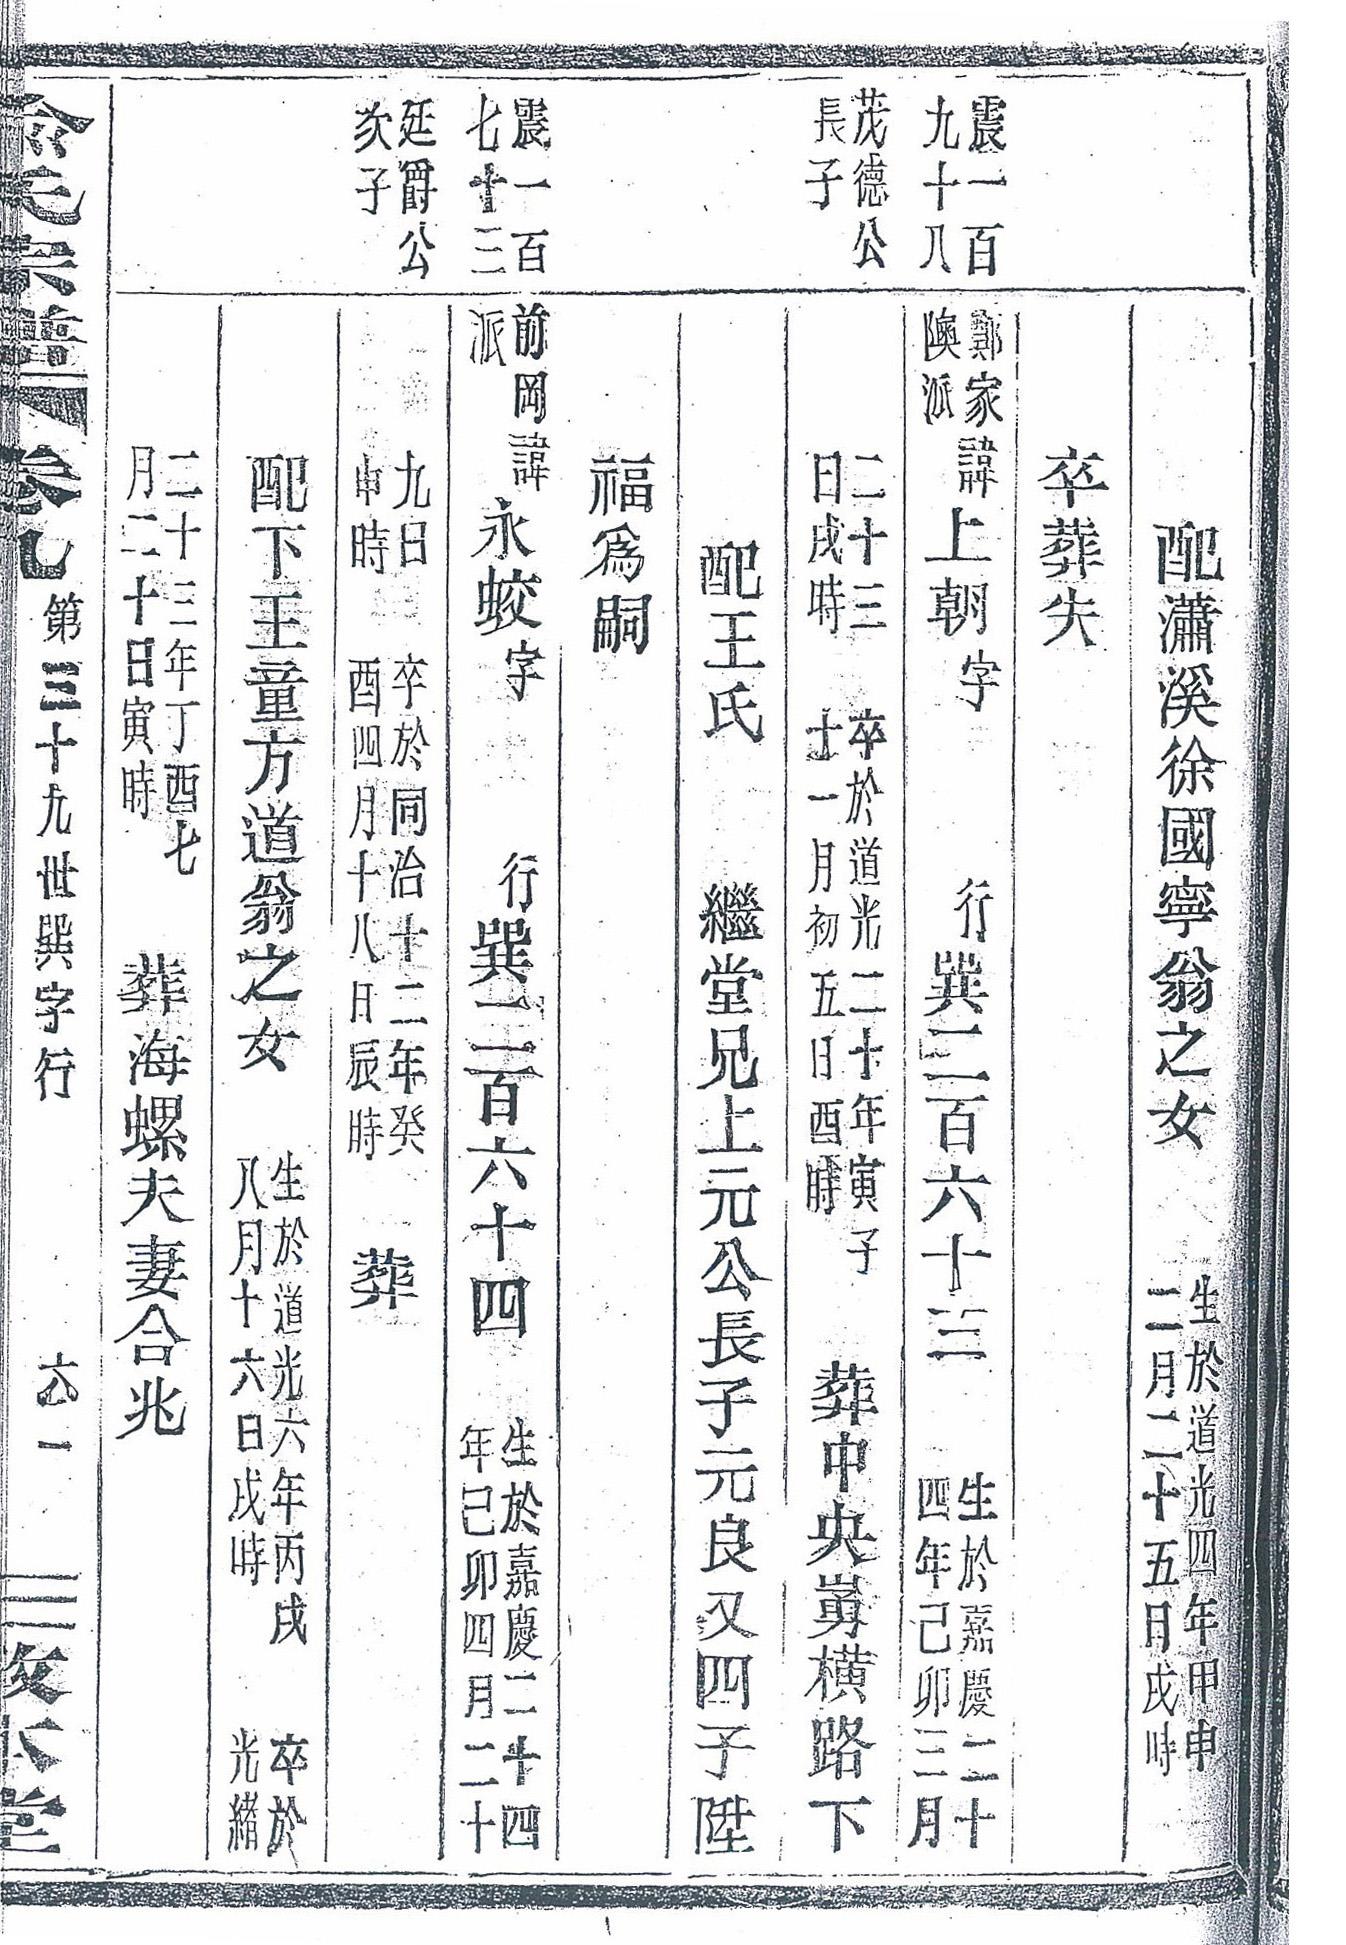 配瀟溪徐國寧翁之女 生於道光四年甲申二月二十五日戌時
卒葬失
震一百九十八
鄭家隩派 諱上朝字 行巽二百六十三 生於嘉慶二十四年己卯三月
茂德公長子
二十三日戌時 卒於道光二十年寅子十一月初五日酉時 葬中央崗橫路下
配王氏 繼堂兄上元公長子元良又四子陞
福為嗣
震一百七十三
前岡派 諱永蛟字 行巽二百六十四 生於嘉慶二十四年己卯四月二十
延爵公次子
九日申時 卒於同治十二年癸酉四月十八日辰時 葬
配下王童方道翁之女 生於道光六年丙戌八月十六日戌時 卒於光緒
二十三年丁酉七月二十日寅時 葬海螺夫妻合兆
俞氏宗譜 卷九 第三十九世巽字行 六一 敦本堂